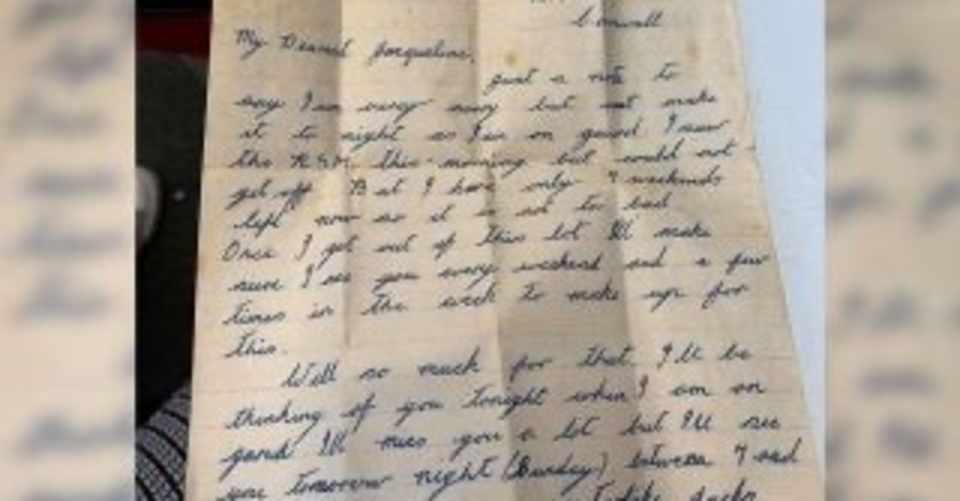 Cornwall
My Dearest Jacqueline,
Just a note to
say I'm very sorry but not make
it to night as I'm on guard. I saw
the R.S.M. this morning but could not
get off. But I have only 4 weekends
left now so it is not to bad
Once I get out of this lot I'll make
sure I see you every weekend and a few
times in the week to make up for
this.
Well so much for that. I'll be
thinking of you tonight when I am on
guard I'll miss you a lot but I'll see
you tomorrow night (Sunday) between 7 and